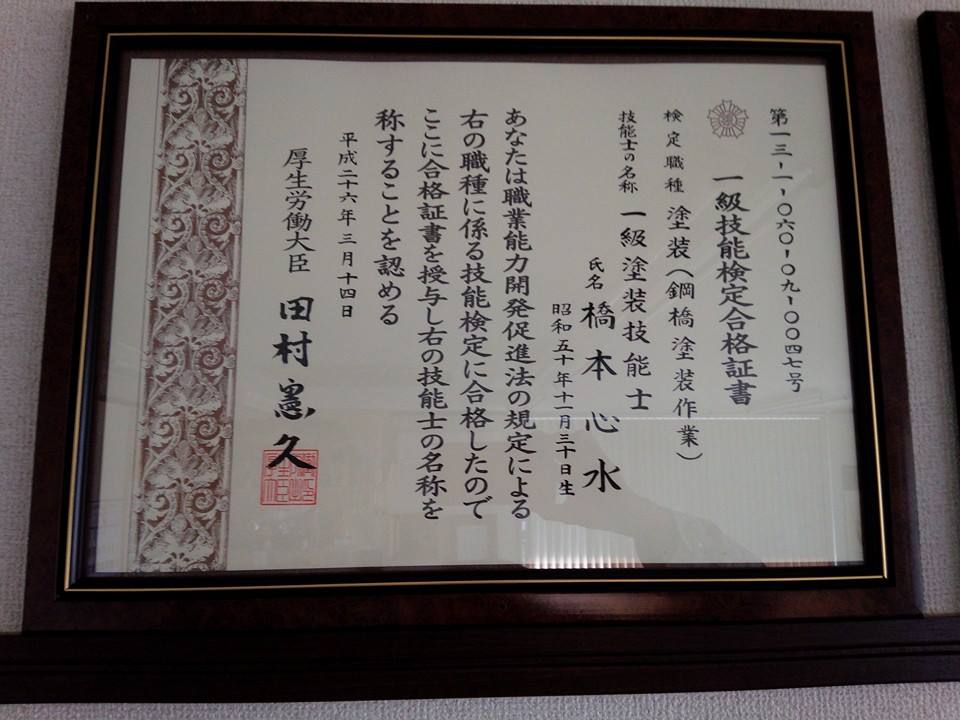 第一三-一-〇六〇-〇九-〇〇四七号
一級技能検定合格証書
検定職種 塗装(鋼橋塗装作業)
技能士の名称 一級塗装技能士
氏名 橋本心水
昭和五十年十一月三十日生
あなたは職業能力開発促進法の規定による
右の職種に係る技能検定に合格したので
ここに合格証書を授与し右の技能士の名称を
称することを認める
平成二十六年三月十四日
厚生労働大臣 田村憲久